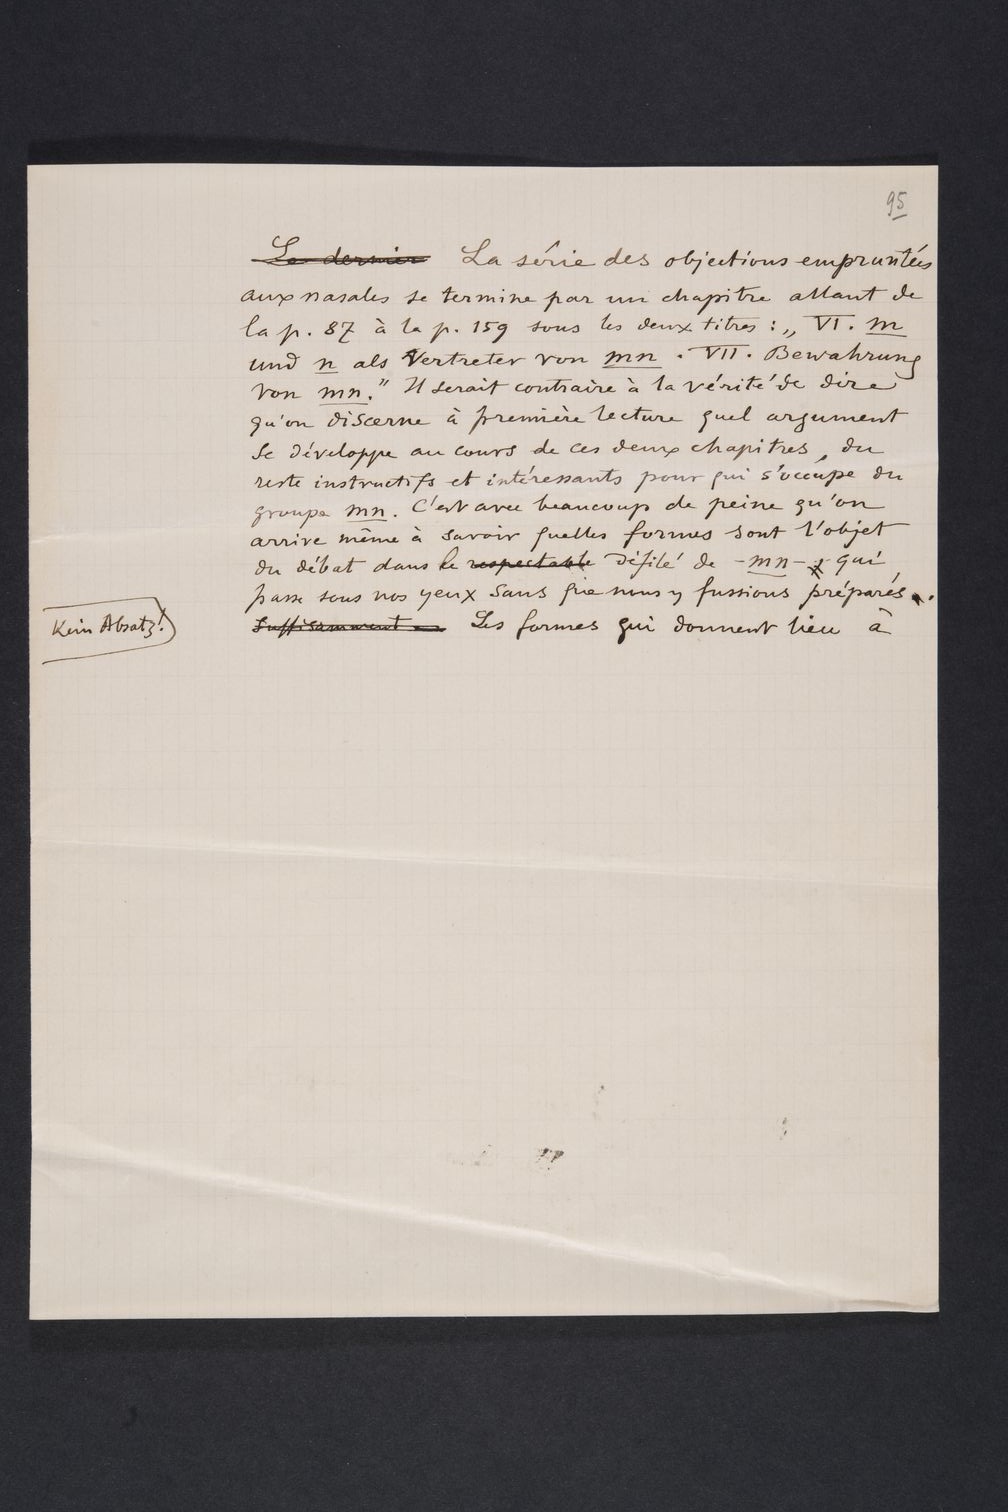 95
Le dernier La série des objections empruntées
aux nasales se termine par un chapitre allant de
la p. 87 à la p. 159 sous les deux titres : „ VI. m
und n als Vertreter von mn . VII. Bewahrung
von mn." Il serait contraire à la vérité de dire
qu'on discerne à première lecture quel argument
se développe au cours de ces deux chapitres, du
reste instructifs et intéressants pour qui s'occupe du
groupe mn. C'est avec beaucoup de peine qu'on
arrive même à savoir quelles formes sont l'objet
du débat dans le respectable défilé de -mn- qui
passe sous nos yeux sans que nous y fussions préparés.
Kein Absatz!
suffisamment Les formes qui donnent lieu à